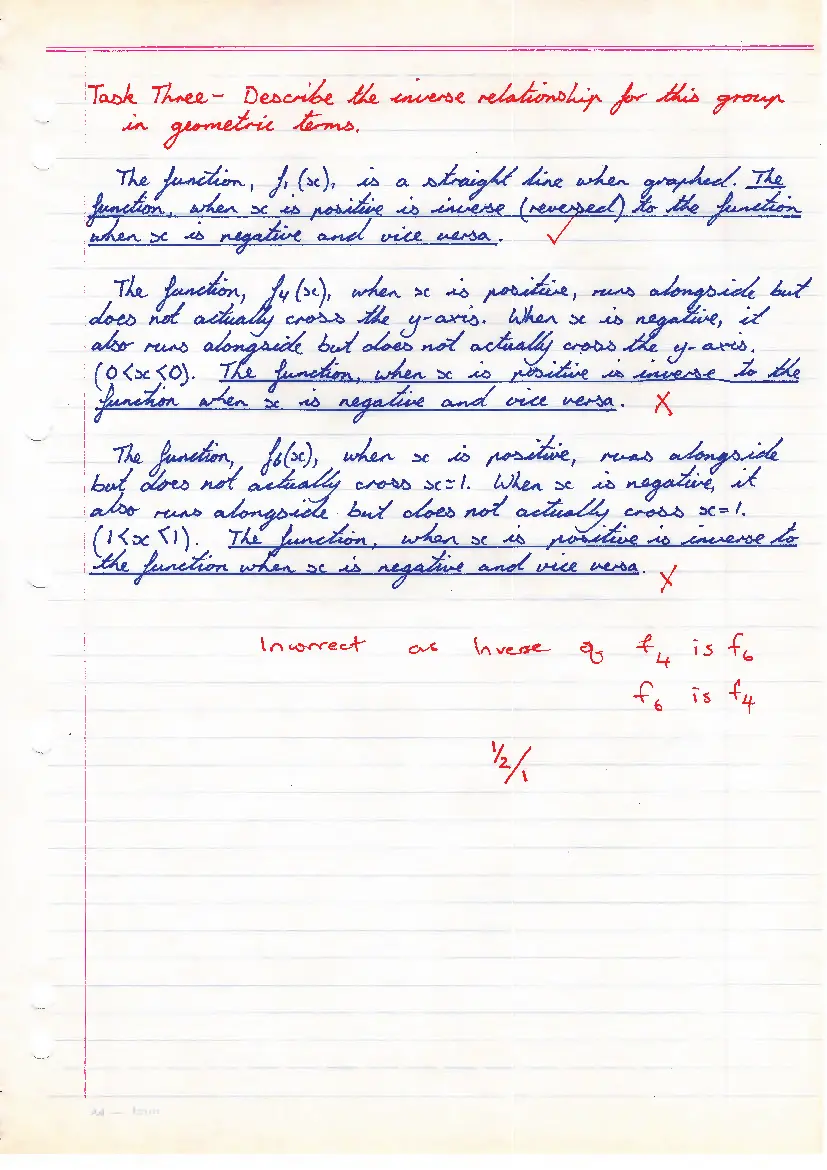 Task Three - Describe the inverse relationship for this group
in geometric terms.
The function, f₁(x), is a straight line when graphed. The
function, when x is positive is inverse (reversed) to the function
when x is negative and vice versa. ✓
The function, f₄(x), when x is positive, runs alongside but
does not actually cross the y-axis. When x is negative, it
also runs alongside but does not actually cross the y-axis.
(0<x<0). The function, when x is positive is inverse to the
function when x is negative and vice versa. X
The function, f₆(x), when x is positive, runs alongside
but does not actually cross x=1. When x is negative, it
also runs alongside but does not actually cross x=1.
(1<x<1). The function, when x is positive is inverse to
the function when x is negative and vice versa. X
Incorrect as Inverse of f₄ is f₆
f₆ is f₄
½/1